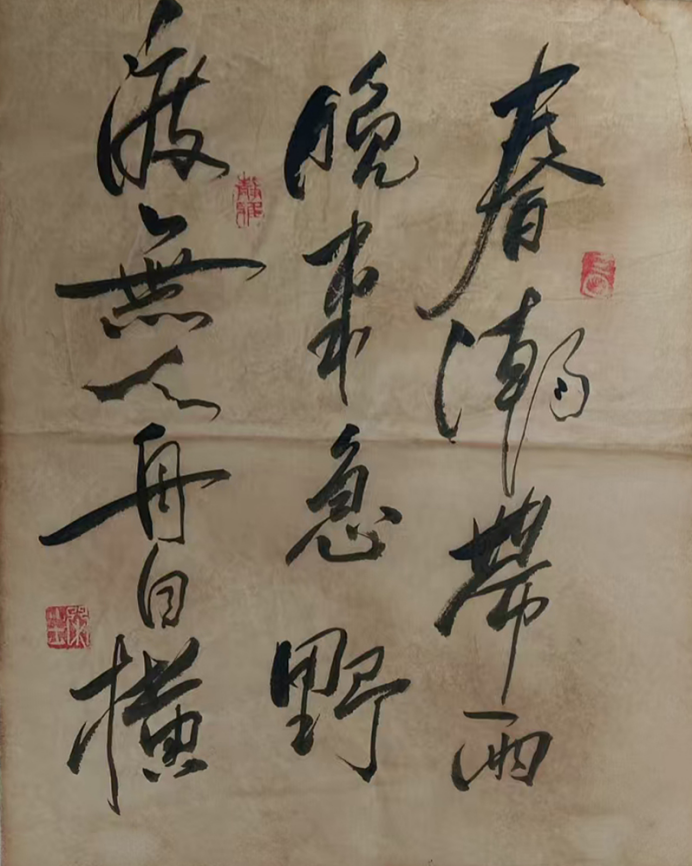 春潮帶雨
晚來急野
渡無人舟自橫